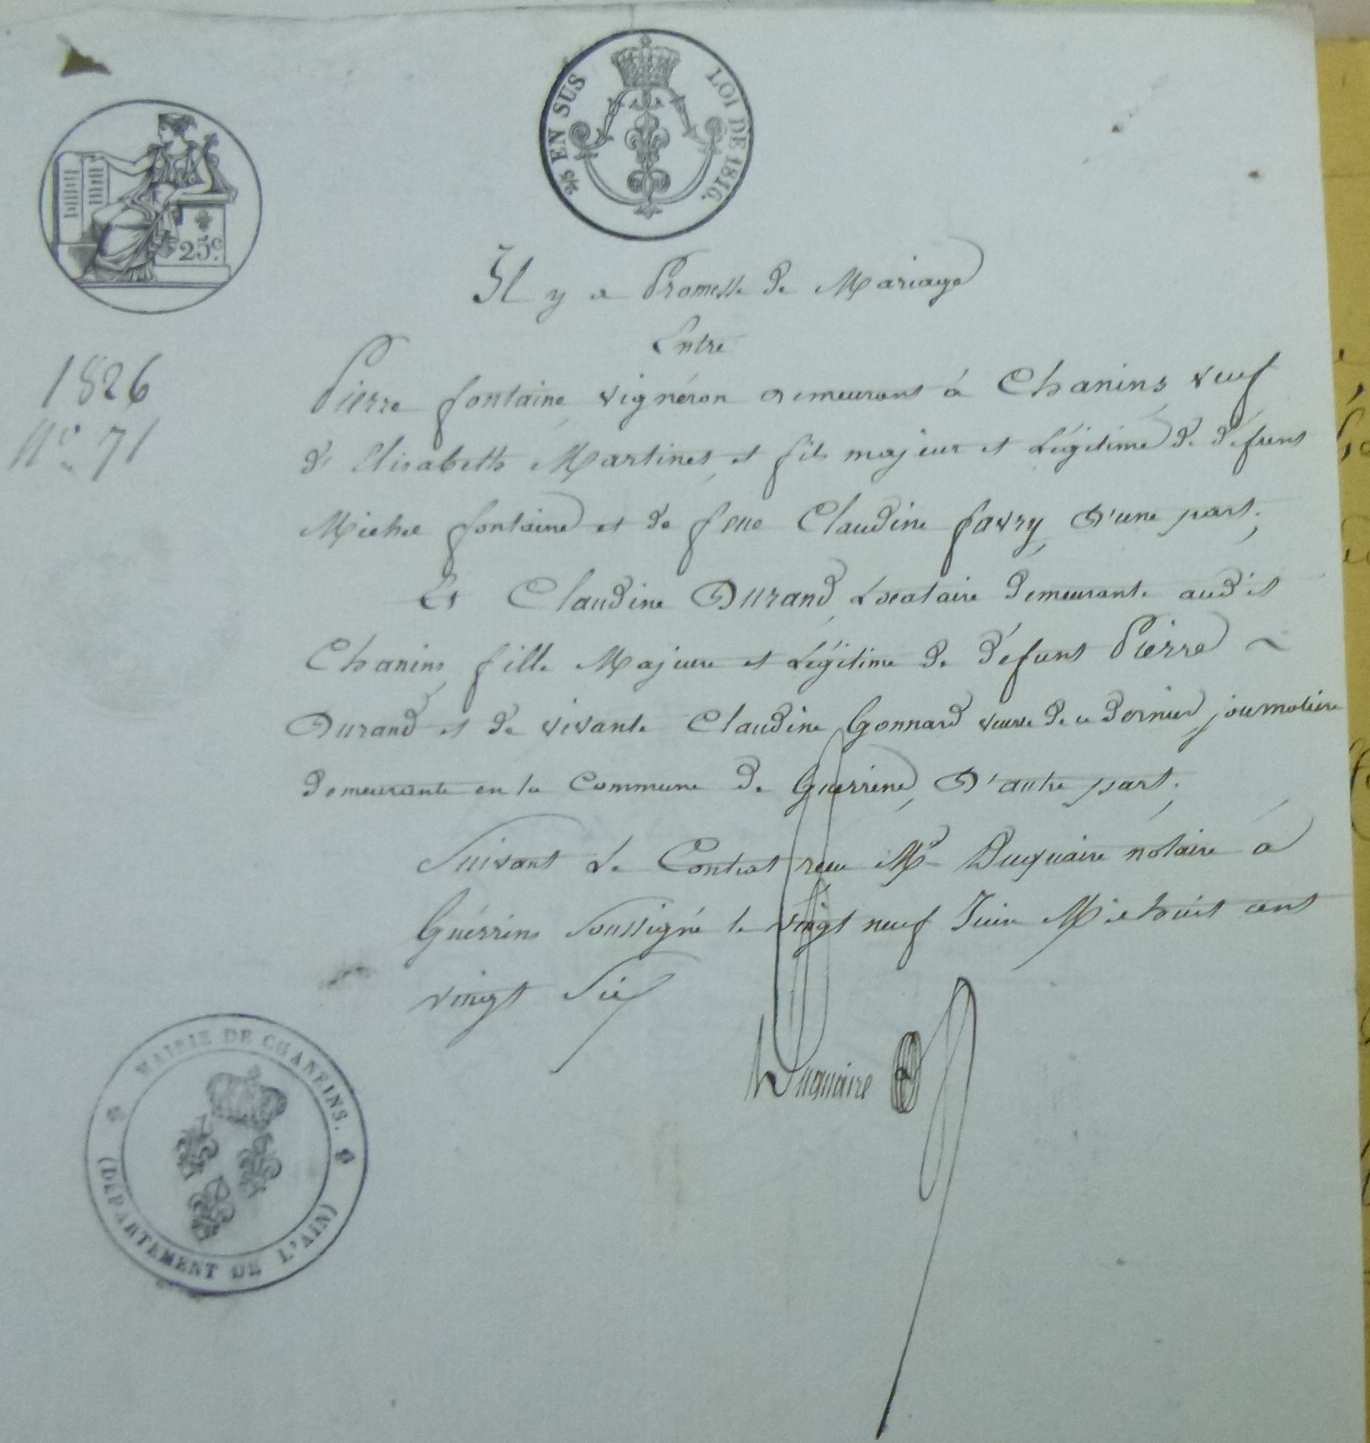 2/5 EN SUS LOI DE 1816.
25c.
Il y a Promesse de Mariage
Entre
1826
N° 71
Pierre fontaine vignéron demeurant à Chanins, veuf
de Elisabeth Martinet, et fils majeur et Légitime de défunt
Michel fontaine et de feue Claudine favry, D'une part;
Et Claudine Durand, Locataire demeurante audit
Chanins, fille Majeure et Légitime de défunt Pierre ~
Durand et de vivante Claudine Gonnard veuve de ce dernier, journalière
demeurante en la Commune de Guerrins, D'autre part;
Suivant Le Contrat reçu Me Duquaire notaire à
Guérrins Soussigné le vingt neuf Juin Mil huit cent
vingt Six
Duquaire
MAIRIE DE CHANEINS.
(DÉPARTEMENT DE L'AIN)